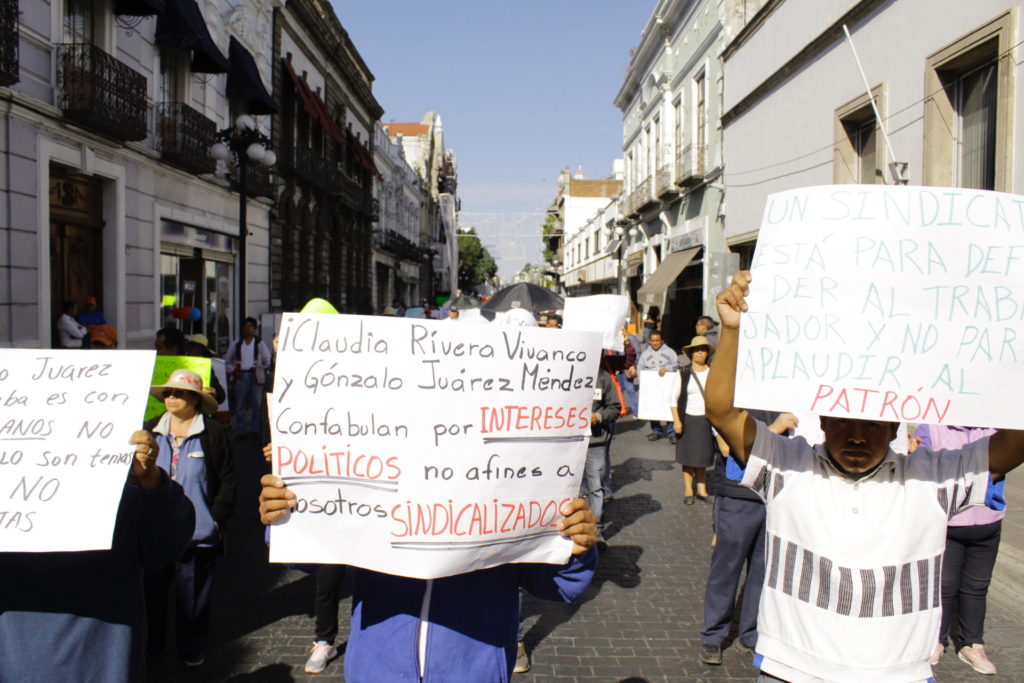 Juarez
es con
NO
LO SON temas
NO
¡Claudia Rivera Vivanco
y Gónzalo Juárez Méndez
Confabulan por INTERESES
POLÍTICOS no afines a
nosotros SINDICALIZADOS
UN SINDICAT
ESTÁ PARA DEF
DER AL TRABA
JADOR Y NO PAR
APLAUDIR AL
PATRÓN